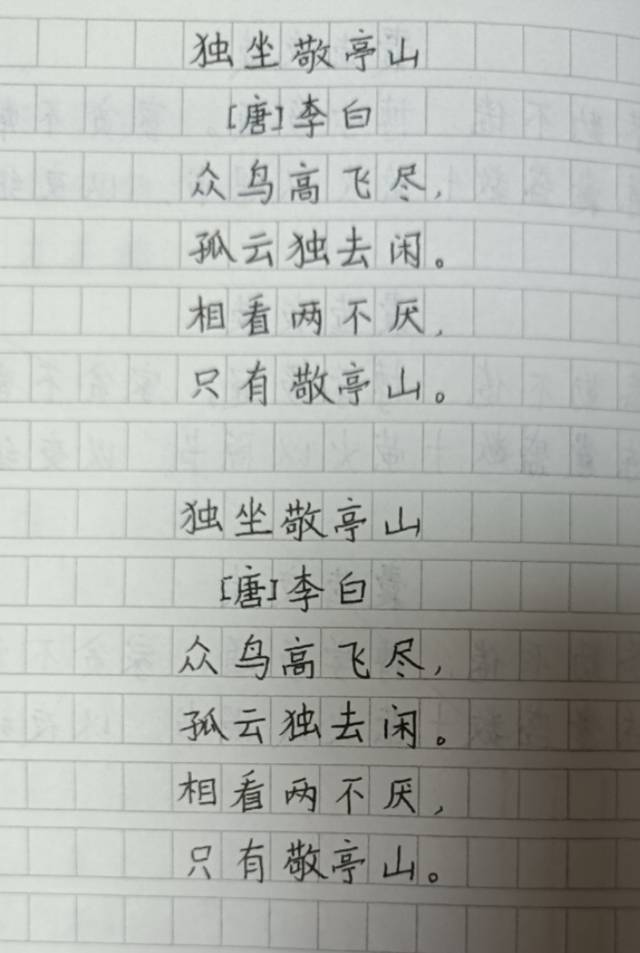 独坐敬亭山
[唐]李白
众鸟高飞尽,
孤云独去闲。
相看两不厌,
只有敬亭山。
独坐敬亭山
[唐]李白
众鸟高飞尽,
孤云独去闲。
相看两不厌,
只有敬亭山。